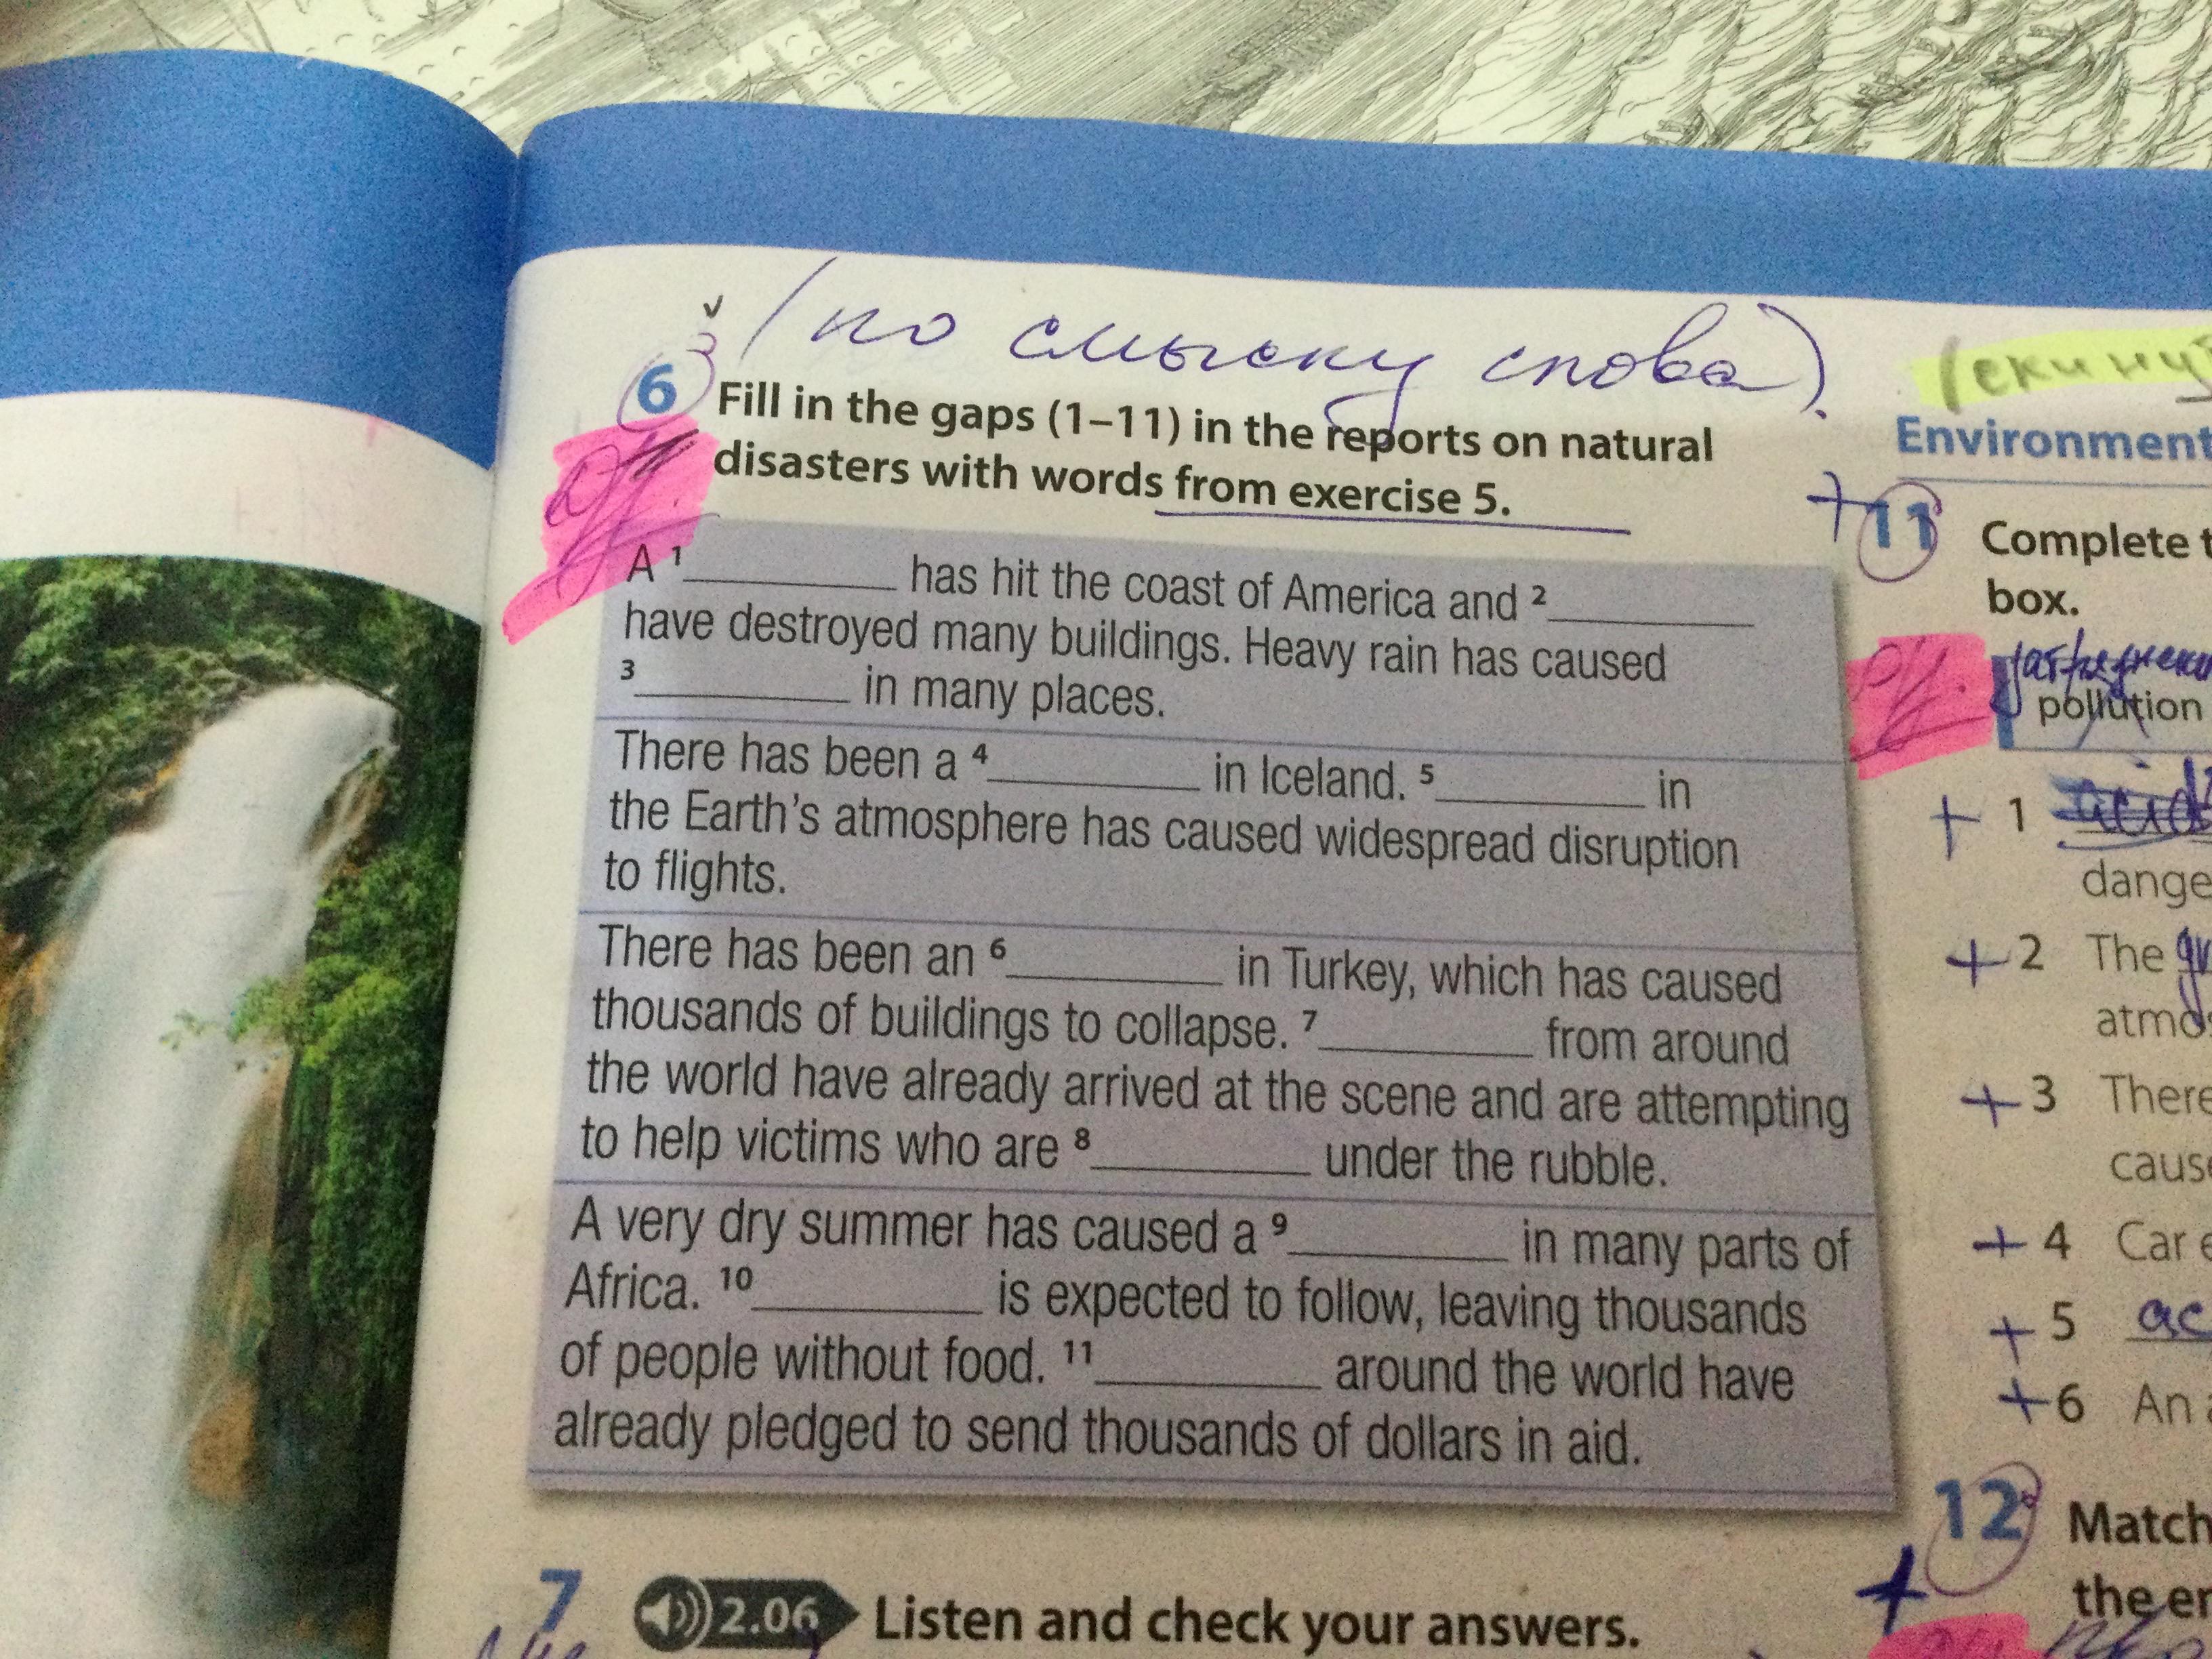 (по смыслу слова).
6 Fill in the gaps (1–11) in the reports on natural
disasters with words from exercise 5.
A 1__________ has hit the coast of America and 2__________
have destroyed many buildings. Heavy rain has caused
3__________ in many places.
There has been a 4__________ in Iceland. 5__________ in
the Earth's atmosphere has caused widespread disruption
to flights.
There has been an 6__________ in Turkey, which has caused
thousands of buildings to collapse. 7__________ from around
the world have already arrived at the scene and are attempting
to help victims who are 8__________ under the rubble.
A very dry summer has caused a 9__________ in many parts of
Africa. 10__________ is expected to follow, leaving thousands
of people without food. 11__________ around the world have
already pledged to send thousands of dollars in aid.
7 2.06 Listen and check your answers.
Environment
+ 11 Complete
box.
pollution
+ 1 acid
+ 2 The
+ 3 There
+ 4 Car
+ 5 ac
+ 6 An
+ 12 Match
the